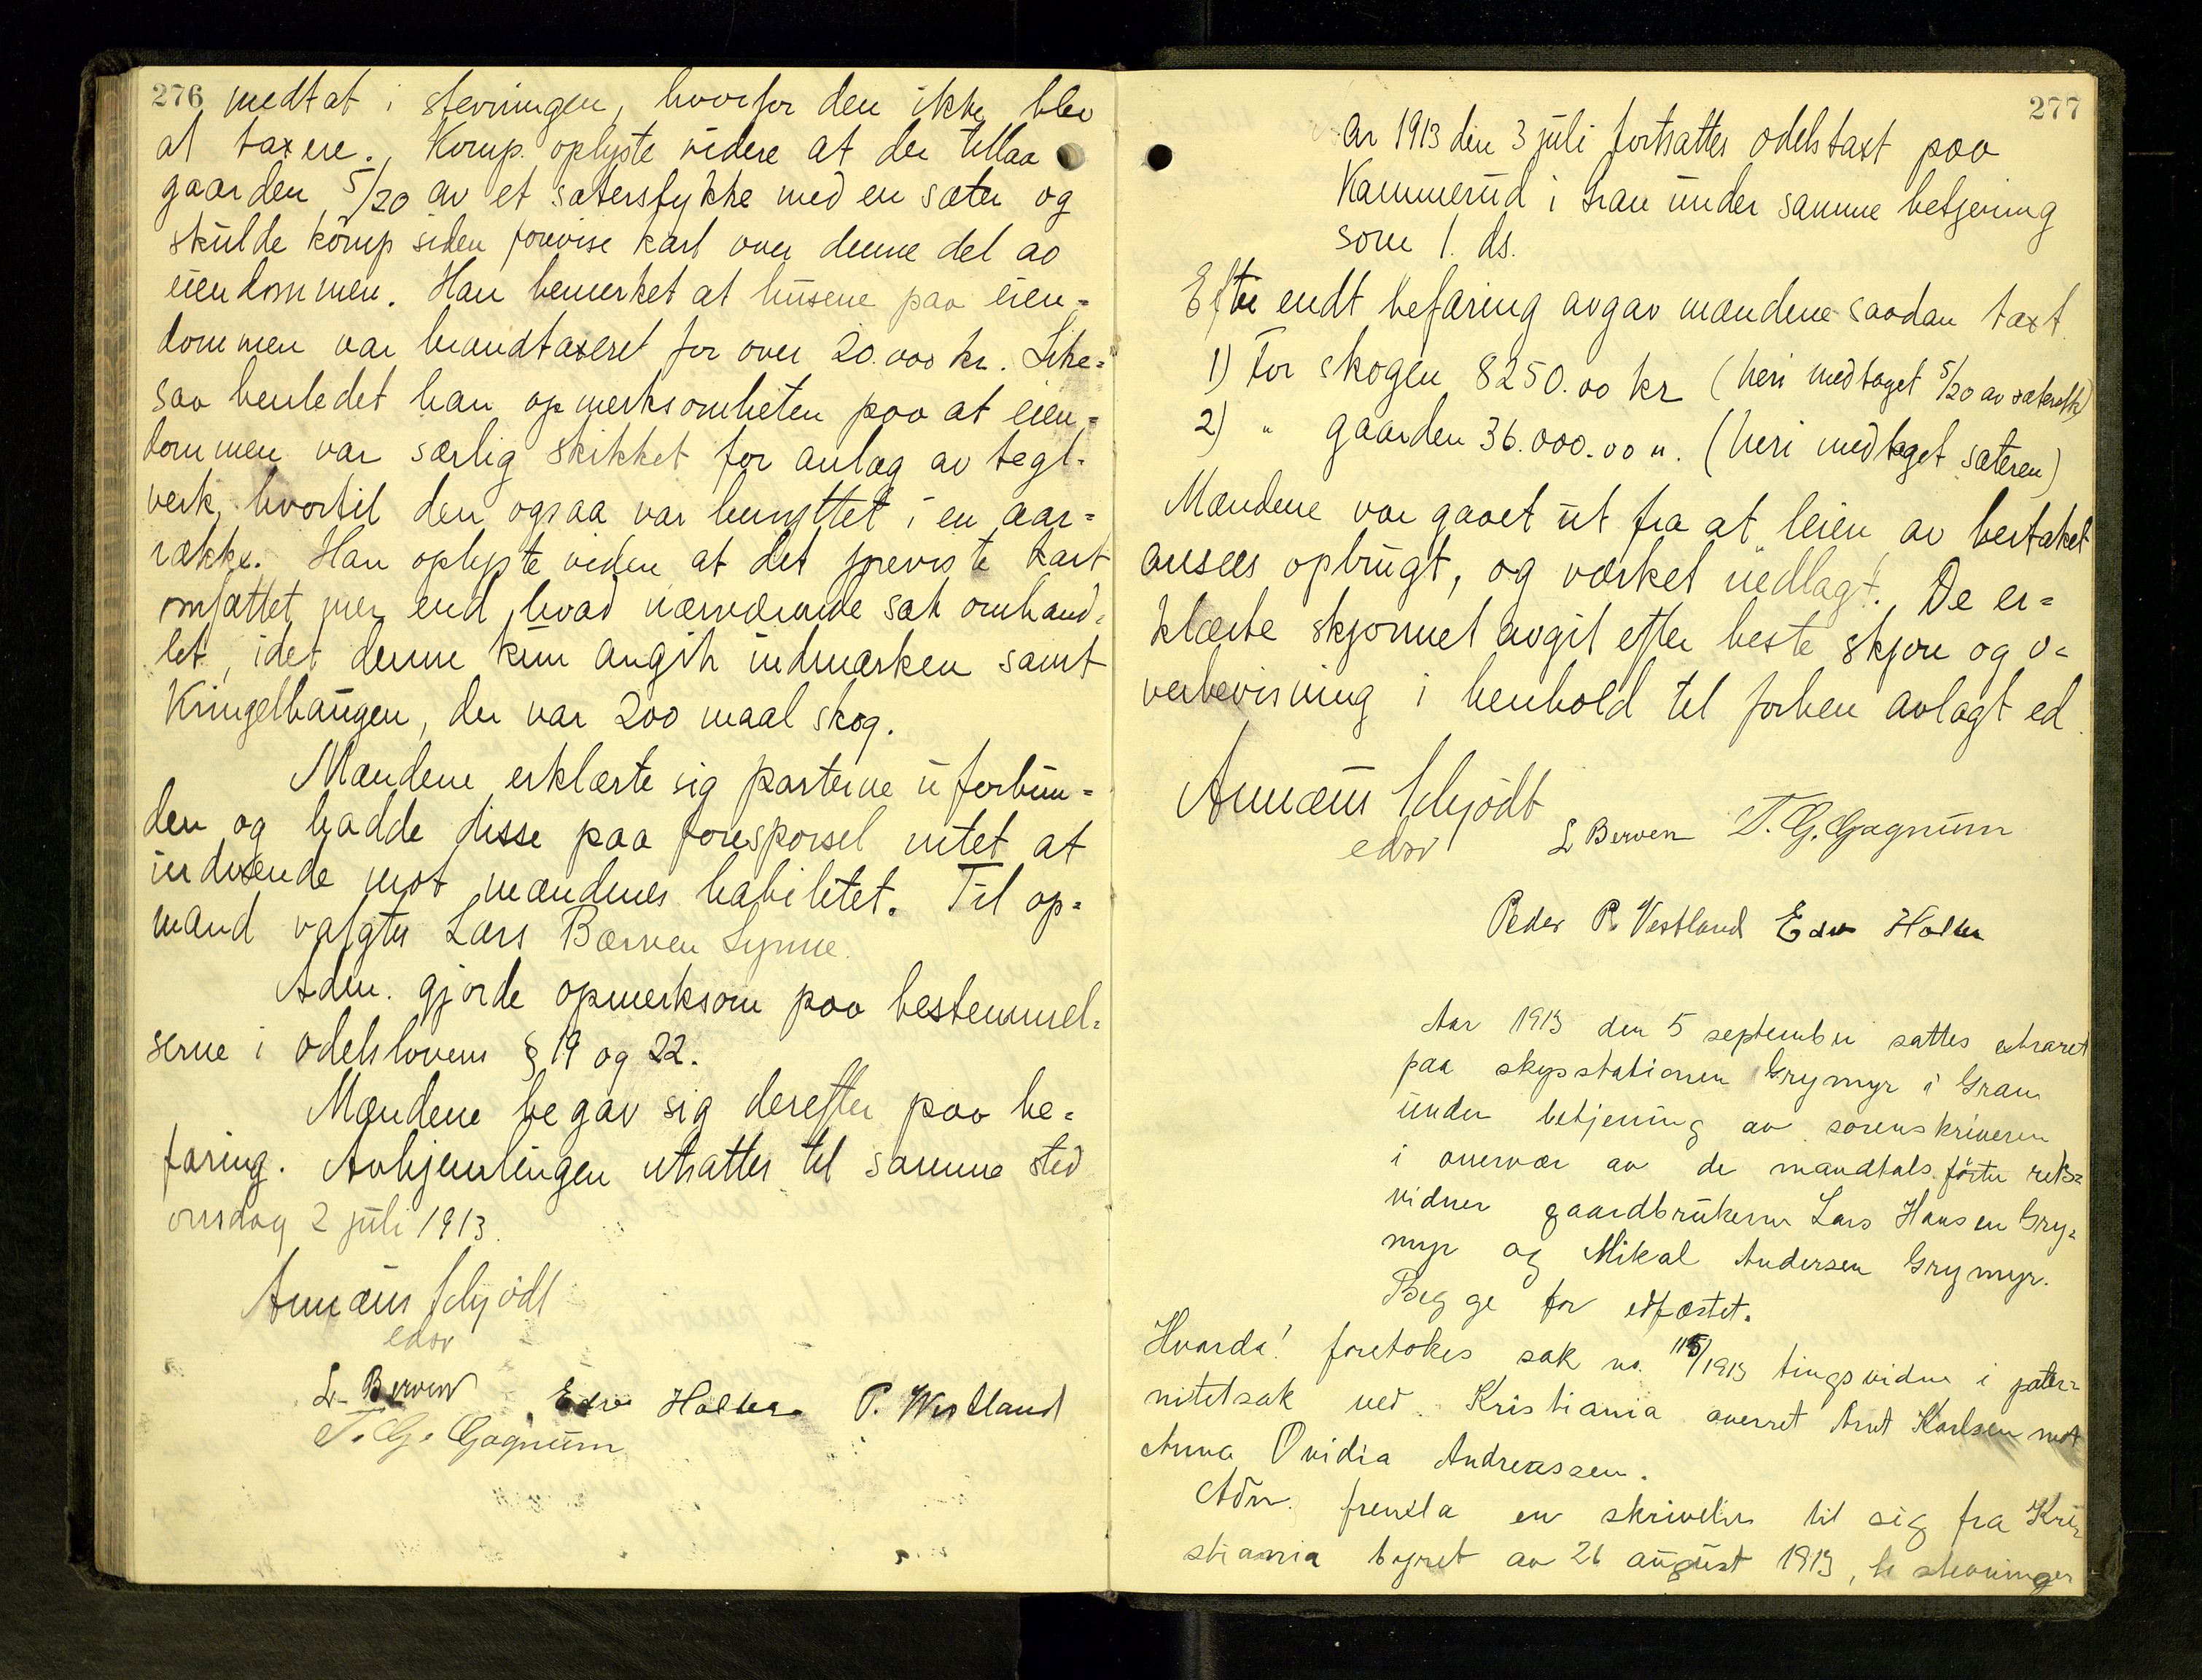 276
medtat i stevningen, hvorfor den ikke blev
at taxere. Komp. oplyste videre at der tillaa
gaarden 5/20 av et sæterstykke med en sæter og
skulde komp siden forevise kart over denne del av
eiendommen. Han bemerket at husene paa eien=
dommen var brandtaxeret for over 20.000 kr. Like=
saa henledet han opmerksomheten paa at eien=
dommen var særlig skikket for anlæg av tegl=
verk, hvortil den ogsaa var benyttet i en aar=
række. Han oplyste viden at det foreviste kart
omfattet mer end hvad nærværende sak omhand=
let, idet denne kun angik indmarken samt
Kringelhaugen, der var 200 maal skog.
Mændene erklærte sig parterne uforbun=
den og hadde disse paa forespørsel intet at
indvende mot mændenes habilitet. Til op=
mand valgtes Lars Bærven Lynne.
Adm. gjorde opmerksom paa bestemmel=
serne i odelslovens § 19 og 22.
Mændene begav sig derefter paa be=
faring. Avhjemlingen utsattes til samme sted
onsdag 2 juli 1913.
Annæus Schjödt
edsv
L. Berven Edv Holter P. Westland
T. G. Gagnum
277
Aar 1913 den 3 juli fortsattes odelstaxt paa
Kammerud i Gran under samme betjening
som 1. ds.
Efter endt befaring avgav mændene saadan taxt.
1) For skogen 8250.00 kr (heri medtaget 5/20 av sæterstk)
2) " gaarden 36.000.00 ". (heri medtaget sæteren)
Mændene var gaaet ut fra at leien av lertaket
ansees opbrugt, og værket nedlagt. De er=
klærte skjønnet avgit efter beste skjøn og o=
verbevisning i henhold til forhen avlagt ed.
Annæus Schjödt
edsv L Berven T. G. Gagnum
Peder P. Vestland Edv Holter
Aar 1913 den 5 september sattes extraret
paa skysstationen Grymyr i Gran
under betjening av sorenskriveren
i overvær av de mandtalsførte rets=
vidner gaardbrukerne Lars Hansen Gry=
myr og Mikal Andersen Grymyr.
Begge før edfæstet.
Hvorda! foretokes sak no. 115/1913 tingsvidne i pater=
nitetsak ved Kristiania overret Arnt Karlsen mot
Anna Ovidia Andreassen.
Adm. fremla en skrivelse til sig fra Kri=
stiania byret av 26 august 1913, 2 stevninger